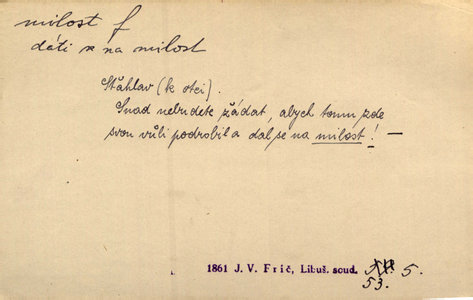 milost f
dáti se na milost
Šťáhlav (k otci).
Snad nebudete žádat, abych tomu zde
svou vůli podrobil a dal se na milost! —
1861 J. V. Frič, Libuš. soud. 5.
53.